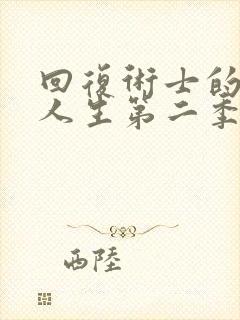 回復術士的
人生第二季
西陸